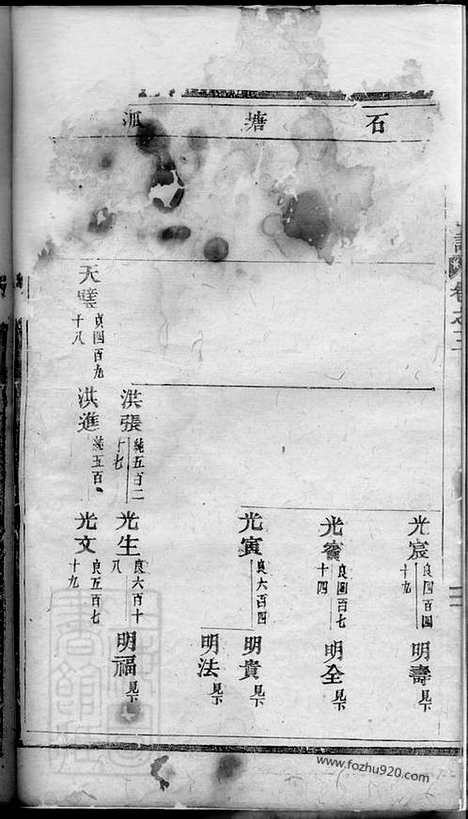 石塘派
光宸 良四百四十九
明壽 見下
光賓 良四百七十四
明全 見下
光寅 良六百四
明貴 見下
明法 見下
洪張 純五百二十七
光生 良六百十八
明福 見下
天璧 貞四百九十八
洪進 純五百
光文 良五百七十九
卷之三
www.fozhu920.com